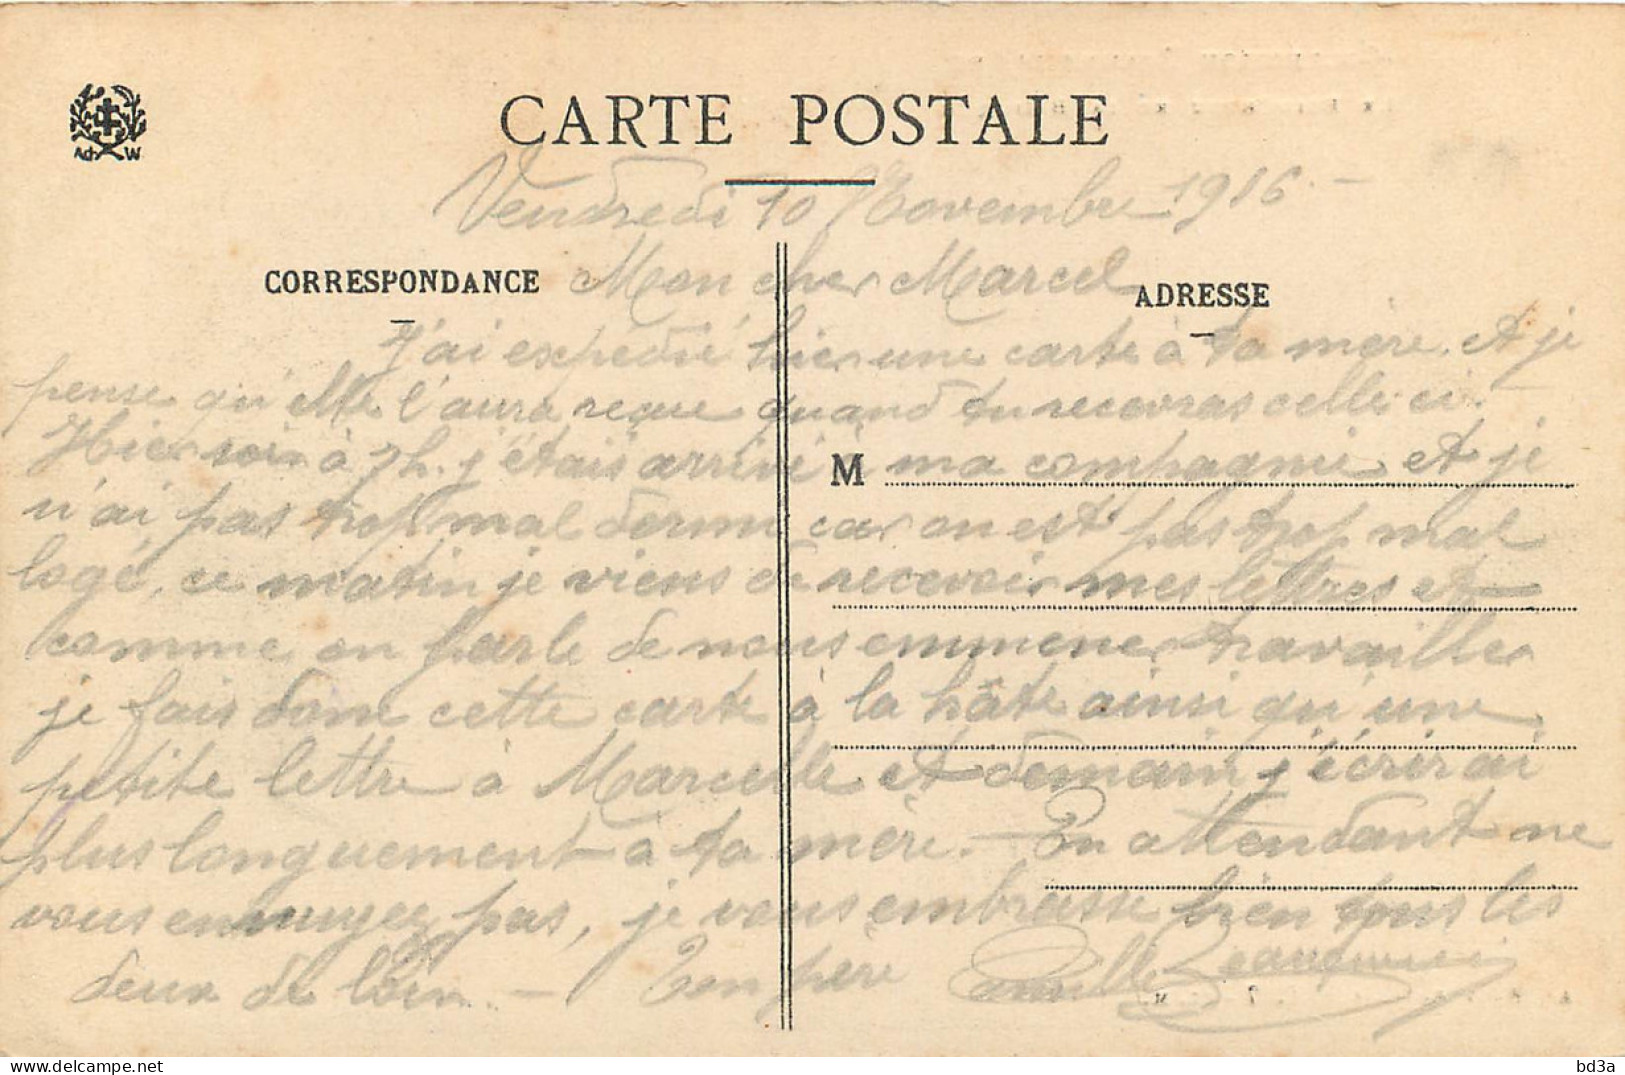 CARTE POSTALE
Vendredi 10 Novembre 1916 -
CORRESPONDANCE
Mon cher Marcel
ADRESSE
J'ai expedié hier une carte à ta mère. et je
pense qu'elle l'aura reçue quand tu recevras celle ci.
Hier soir à 7h. j'étais arrivé à ma compagnie et je
M
n'ai pas trop mal dormi car on est pas trop mal
logé, ce matin je viens de recevoir mes lettres et
comme on parle de nous emmener travailler
je fais donc cette carte à la hâte ainsi qu'une
petite lettre à Marcelle et demain j'écrirai
plus longuement à ta mère. - En attendant ne
vous ennuyez pas, je vous embrasse bien tous les
deux de loin. - Ton père Camille
Ad W
bd3a